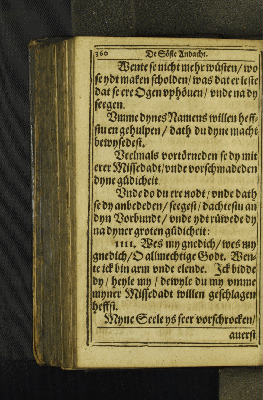 360 De Söste Andacht.
Wente se nicht mehr wüsten/ wo
se ydt maken scholden/ was dat erleste
dat se ere Ogen vphöuen/ vnde na dy
seegen.
Vmme dynes Namens willen heff-
stu en gehulpen/ dath du dyne macht
bewysedest.
Veelmals vortörneden se dy mit
erer Missedadt/ vnde vorschmadeden
dyne güdicheit
Vnde do du ere nodt/ vnde dath
se dy anbededen/ seegest/ dachtestu an
dyn Vorbundt/ vnde ydt rüwede dy
na dyner groten güdicheit:
IIII. Wes my gnedich/ wes my
gnedich/ O allmechtige Godt. Wen-
te ick bin arm vnde elende. Ick bidde
dy/ heyle my/ dewyle du my vmme
myner Missedadt willen geschlagen
heffst.
Myne Seele ys seer vorschrocken/
auerst